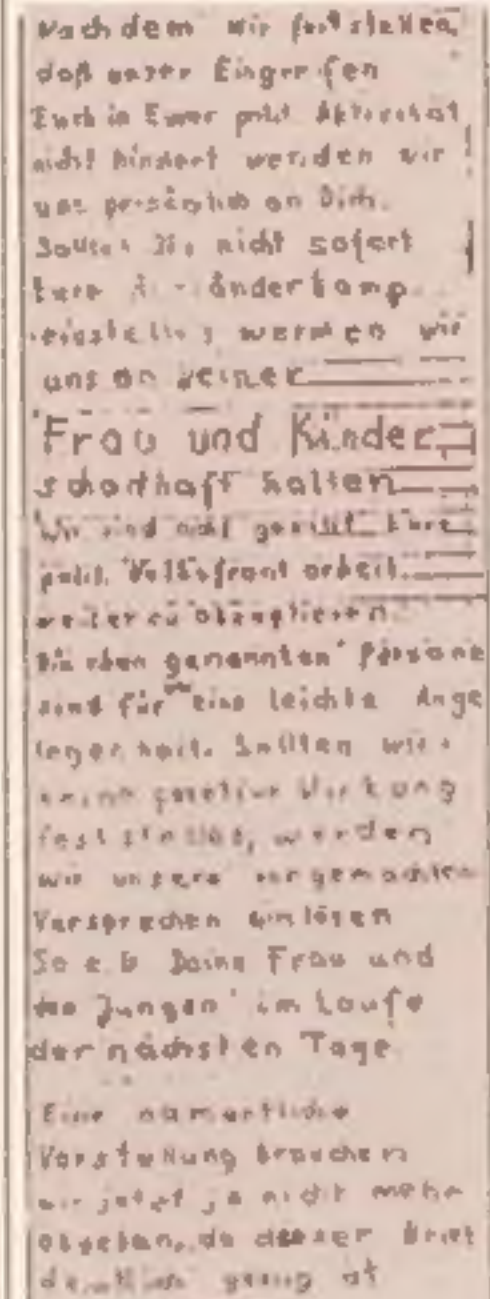 Nachdem wir feststellen,
daß unser Eingreifen
Euch in Eurer polit Aktivität
nicht hindert wenden wir
uns persönlich an Dich.
Sollten Sie nicht sofort
Eure
werden wir
uns an Deiner
Frau und Kinder
schadhaft halten
Wir sind nicht gewillt Eure
polit. Volksfront arbeit
weiter zu
Die oben genannten Persone
sind für eine leichte Ange
legenheit. Sollten wir
keine positive Wirkung
feststellen, werden
wir unsere vorgemachten
Versprechen einlösen
So z. b Deine Frau und
die Jungen im Laufe
der nächsten Tage
Eine namentliche
Vorstellung brauchen
wir jetzt ja nicht mehr
da dieser Brief
deutlich genug ist